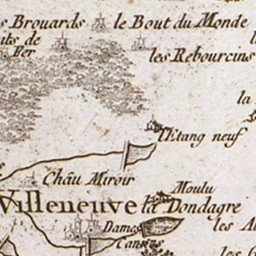 s Brouards
le Bout du Monde
its de
Fer
les Rebourcins
la
l'Etang neuf
Châu Miroir
Moulu
Villeneuve
la Dondagre
Dames
les A
Canus
les